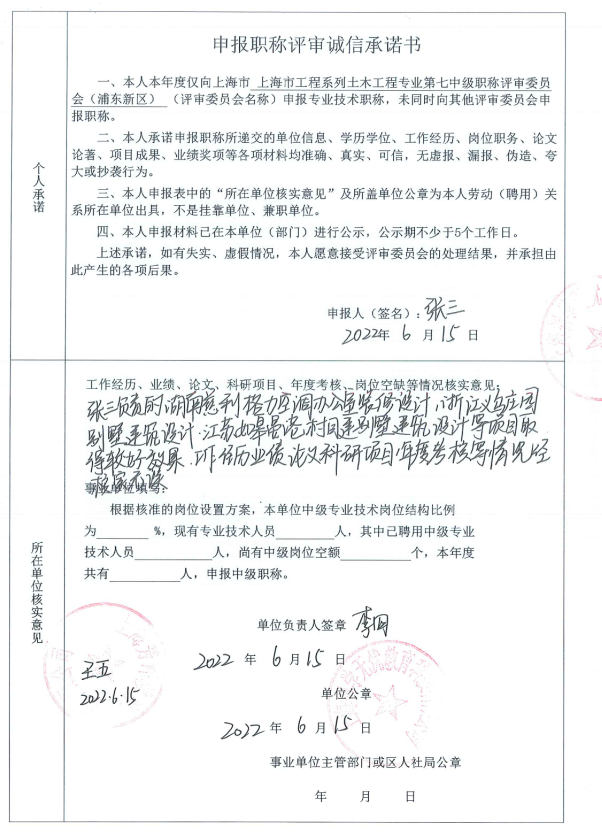 申报职称评审诚信承诺书
个人承诺
一、本人本年度仅向上海市 上海市工程系列土木工程专业第七中级职称评审委员
会（浦东新区）（评审委员会名称）申报专业技术职称，未同时向其他评审委员会申
报职称。
二、本人承诺申报职称所递交的单位信息、学历学位、工作经历、岗位职务、论文
论著、项目成果、业绩奖项等各项材料均准确、真实、可信，无虚报、漏报、伪造、夸
大或抄袭行为。
三、本人申报表中的“所在单位核实意见”及所盖单位公章为本人劳动（聘用）关
系所在单位出具，不是挂靠单位、兼职单位。
四、本人申报材料已在本单位（部门）进行公示，公示期不少于5个工作日。
上述承诺，如有失实、虚假情况，本人愿意接受评审委员会的处理结果，并承担由
此产生的各项后果。
申报人（签名）：张三
2022年 6 月 15 日
所在单位核实意见
工作经历、业绩、论文、科研项目、年度考核、岗位空缺等情况核实意见：
张三负责的湖南慈利格力空调办公室装修设计、浙江义乌庄园
别墅建筑设计、江苏如皋 村 建别墅建筑设计等项目取
得较好效果，工作经历业绩论文科研项目年度考核等情况经
核实无误
事业单位填写：
根据核准的岗位设置方案，本单位中级专业技术岗位结构比例
为______ %，现有专业技术人员________人，其中已聘用中级专业
技术人员________人，尚有中级岗位空额________个，本年度
共有________人，申报中级职称。
单位负责人签章 李四
2022 年 6 月 15 日
王五
2022.6.15
单位公章
2022 年 6 月 15 日
事业单位主管部门或区人社局公章
年 月 日